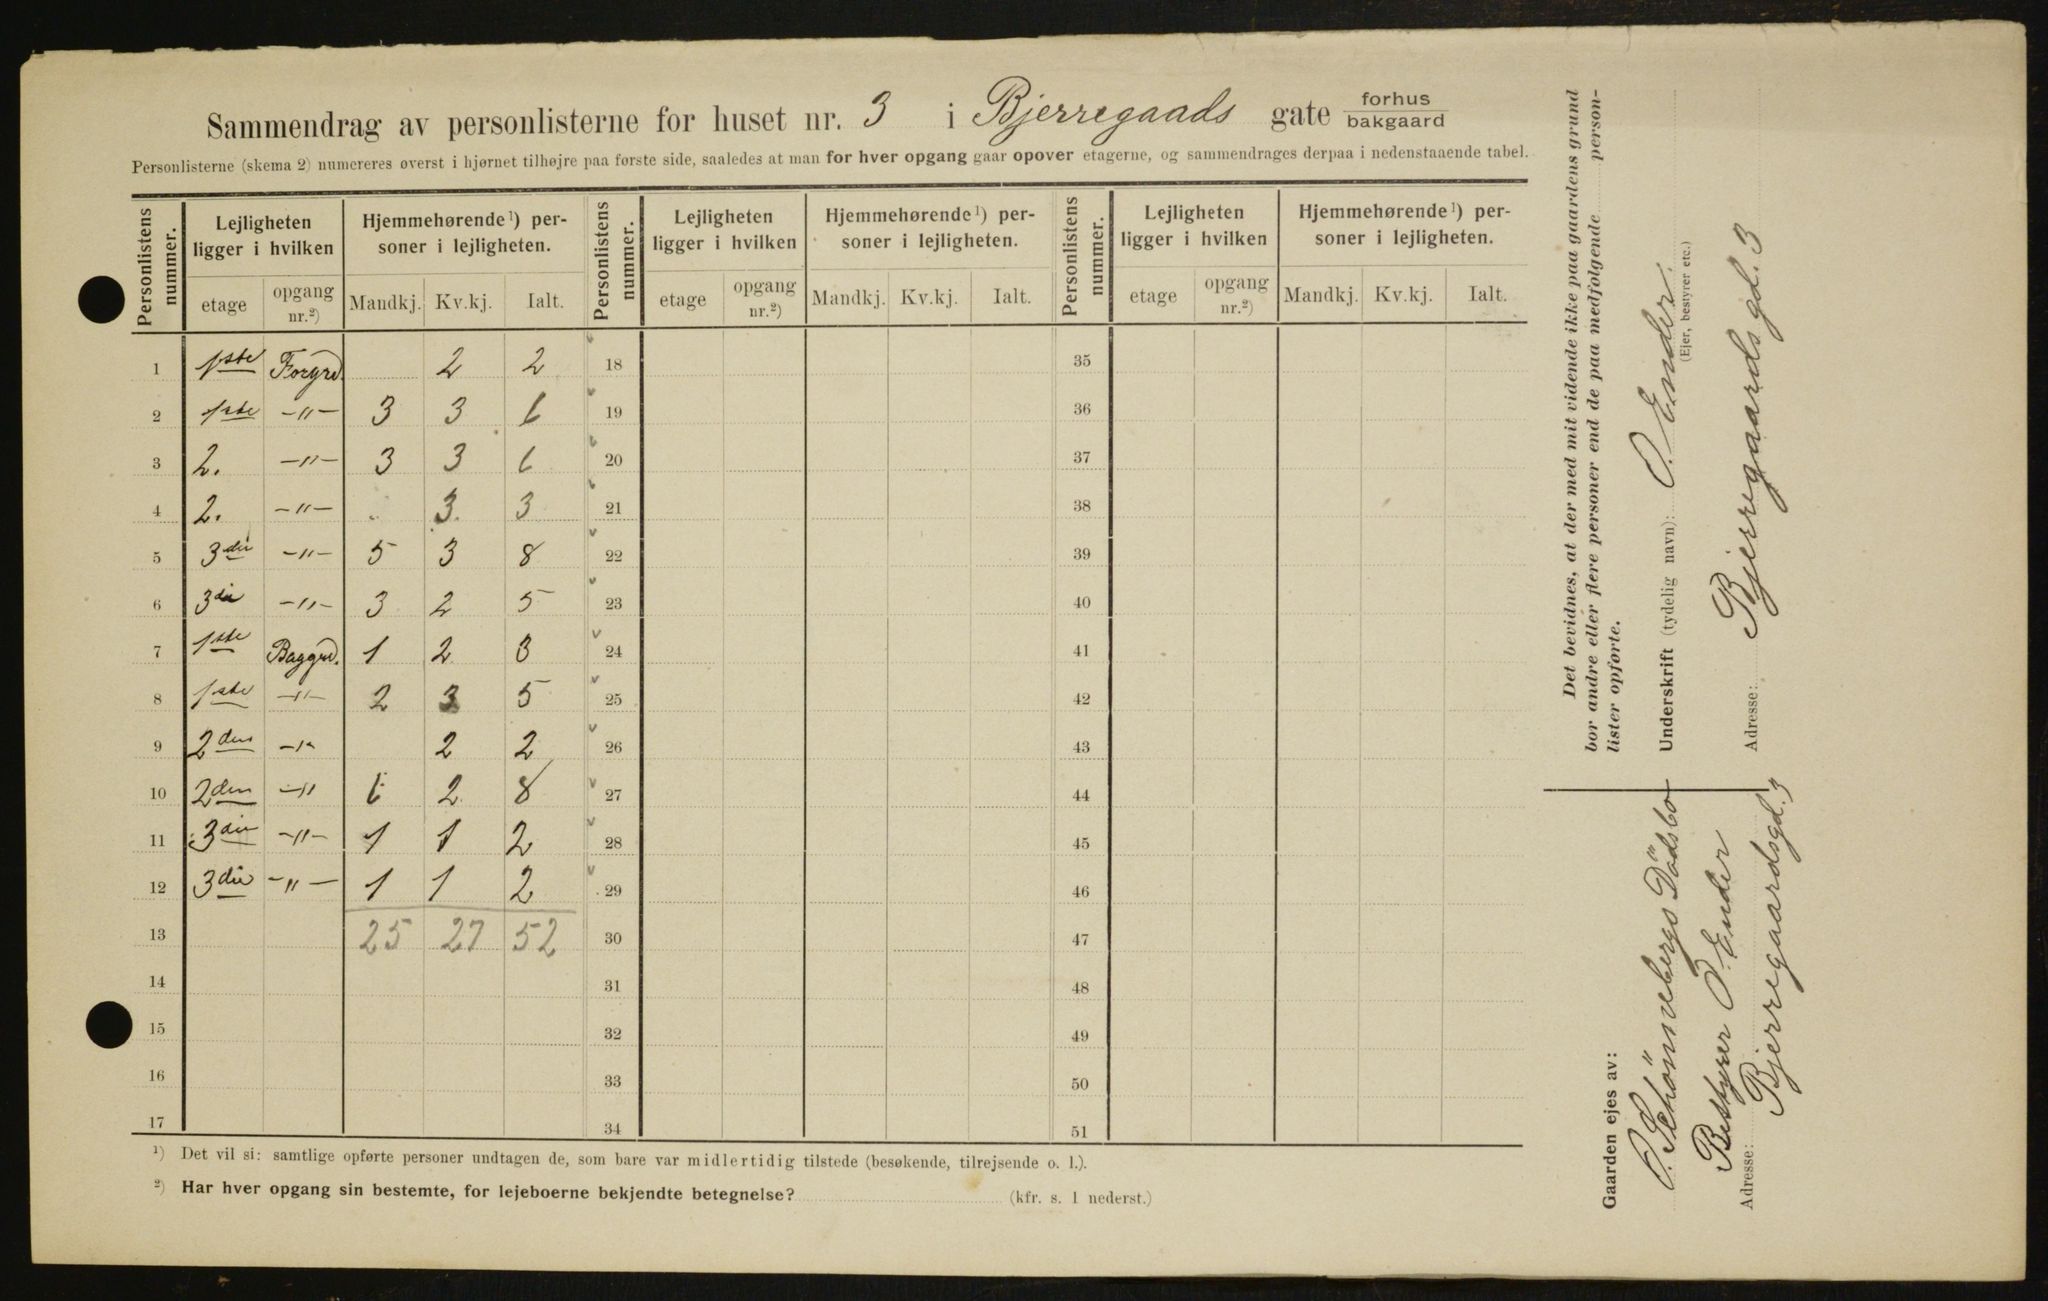 Sammendrag av personlisterne for huset nr. 3 i Bjerregaads gate forhus bakgaard
Personlisterne (skema 2) numereres øverst i hjørnet tilhøjre paa første side, saaledes at man for hver opgang gaar opover etagerne, og sammendrages derpaa i nedenstaaende tabel.
Personlistens nummer. Lejligheten ligger i hvilken Hjemmehørende ¹) personer i lejligheten. Personlistens nummer. Lejligheten ligger i hvilken Hjemmehørende ¹) personer i lejligheten. Personlistens nummer. Lejligheten ligger i hvilken Hjemmehørende ¹) personer i lejligheten.
etage opgang nr.²) Mandkj. Kv.kj. Ialt. etage opgang nr.²) Mandkj. Kv.kj. Ialt. etage opgang nr.²) Mandkj. Kv.kj. Ialt.
1 1ste Forgrd. 2 2 18 35
2 1ste -"- 3 3 6 19 36
3 2. -"- 3 3 6 20 37
4 2. -"- 3 3 21 38
5 3die -"- 5 3 8 22 39
6 3die -"- 3 2 5 23 40
7 1ste Baggrd. 1 2 3 24 41
8 1ste -"- 2 3 5 25 42
9 2den -"- 2 2 26 43
10 2den -"- 6 2 8 27 44
11 3die -"- 1 1 2 28 45
12 3die -"- 1 1 2 29 46
13 25 27 52 30 47
14 31 48
15 32 49
16 33 50
17 34 51
¹) Det vil si: samtlige opførte personer undtagen de, som bare var midlertidig tilstede (besøkende, tilrejsende o. l.).
²) Har hver opgang sin bestemte, for lejeboerne bekjendte betegnelse? (kfr. s. 1 nederst.)
Det bevidnes, at der med mit vidende ikke paa gaardens grund
bor andre eller flere personer end de paa medfølgende person-
lister opførte.
Underskrift (tydelig navn): O. Ender.
(Ejer, bestyrer etc.)
Adresse: Bjerregaards gd. 3
Gaarden ejes av:
O. Schönnebergs Dödsbo
Bestyrer O. Ender
Adresse: Bjerregaardsgd. 3